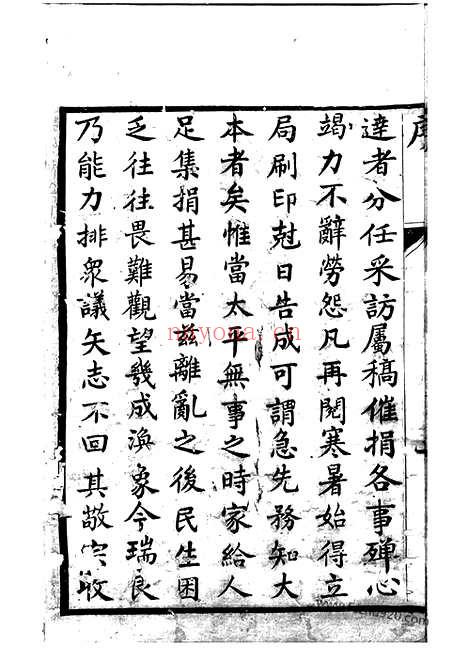 達者分任采訪屬稿催捐各事殫心
竭力不辭勞怨凡再閱寒暑始得立
局刷印尅日告成可謂急先務知大
本者矣惟當太平無事之時家給人
足集捐甚易當茲離亂之後民生困
乏往往畏難觀望幾成渙象今瑞良
乃能力排衆議矢志不回其敬宗收
nayona.cn